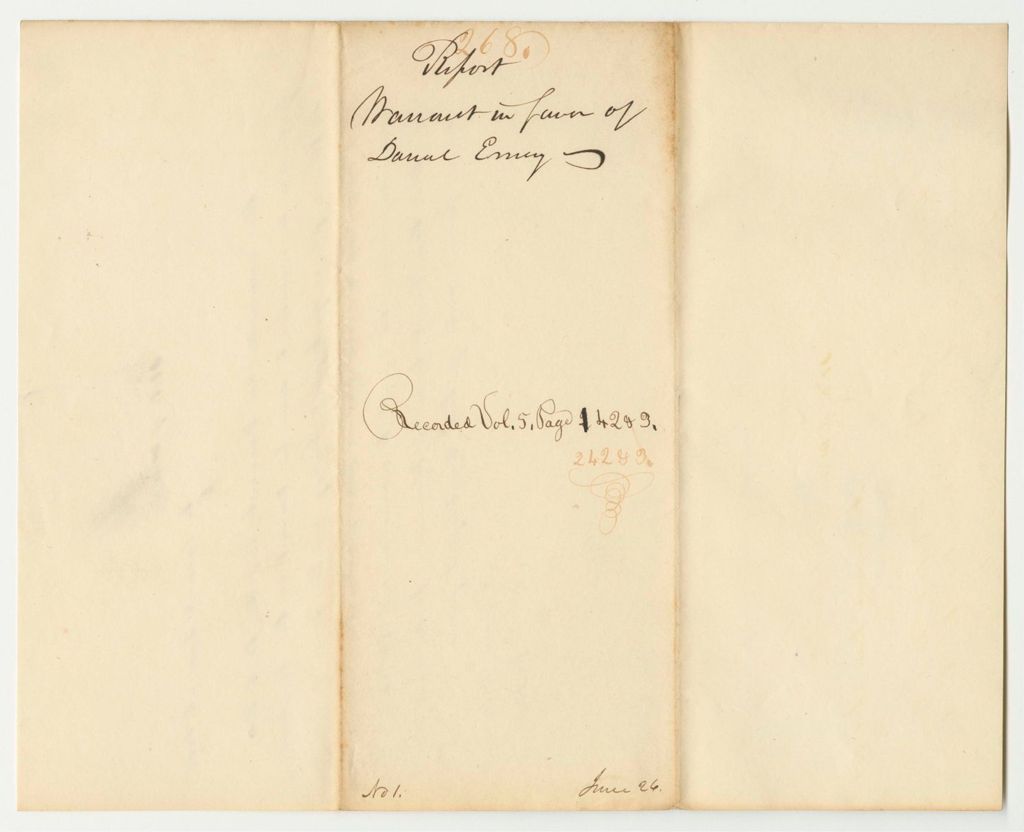 268.
Report
Warrant in favor of
Daniel Emery
Recorded Vol. 5. Page 1 42 & 3.
242 & 3.
No 1.
June 26.